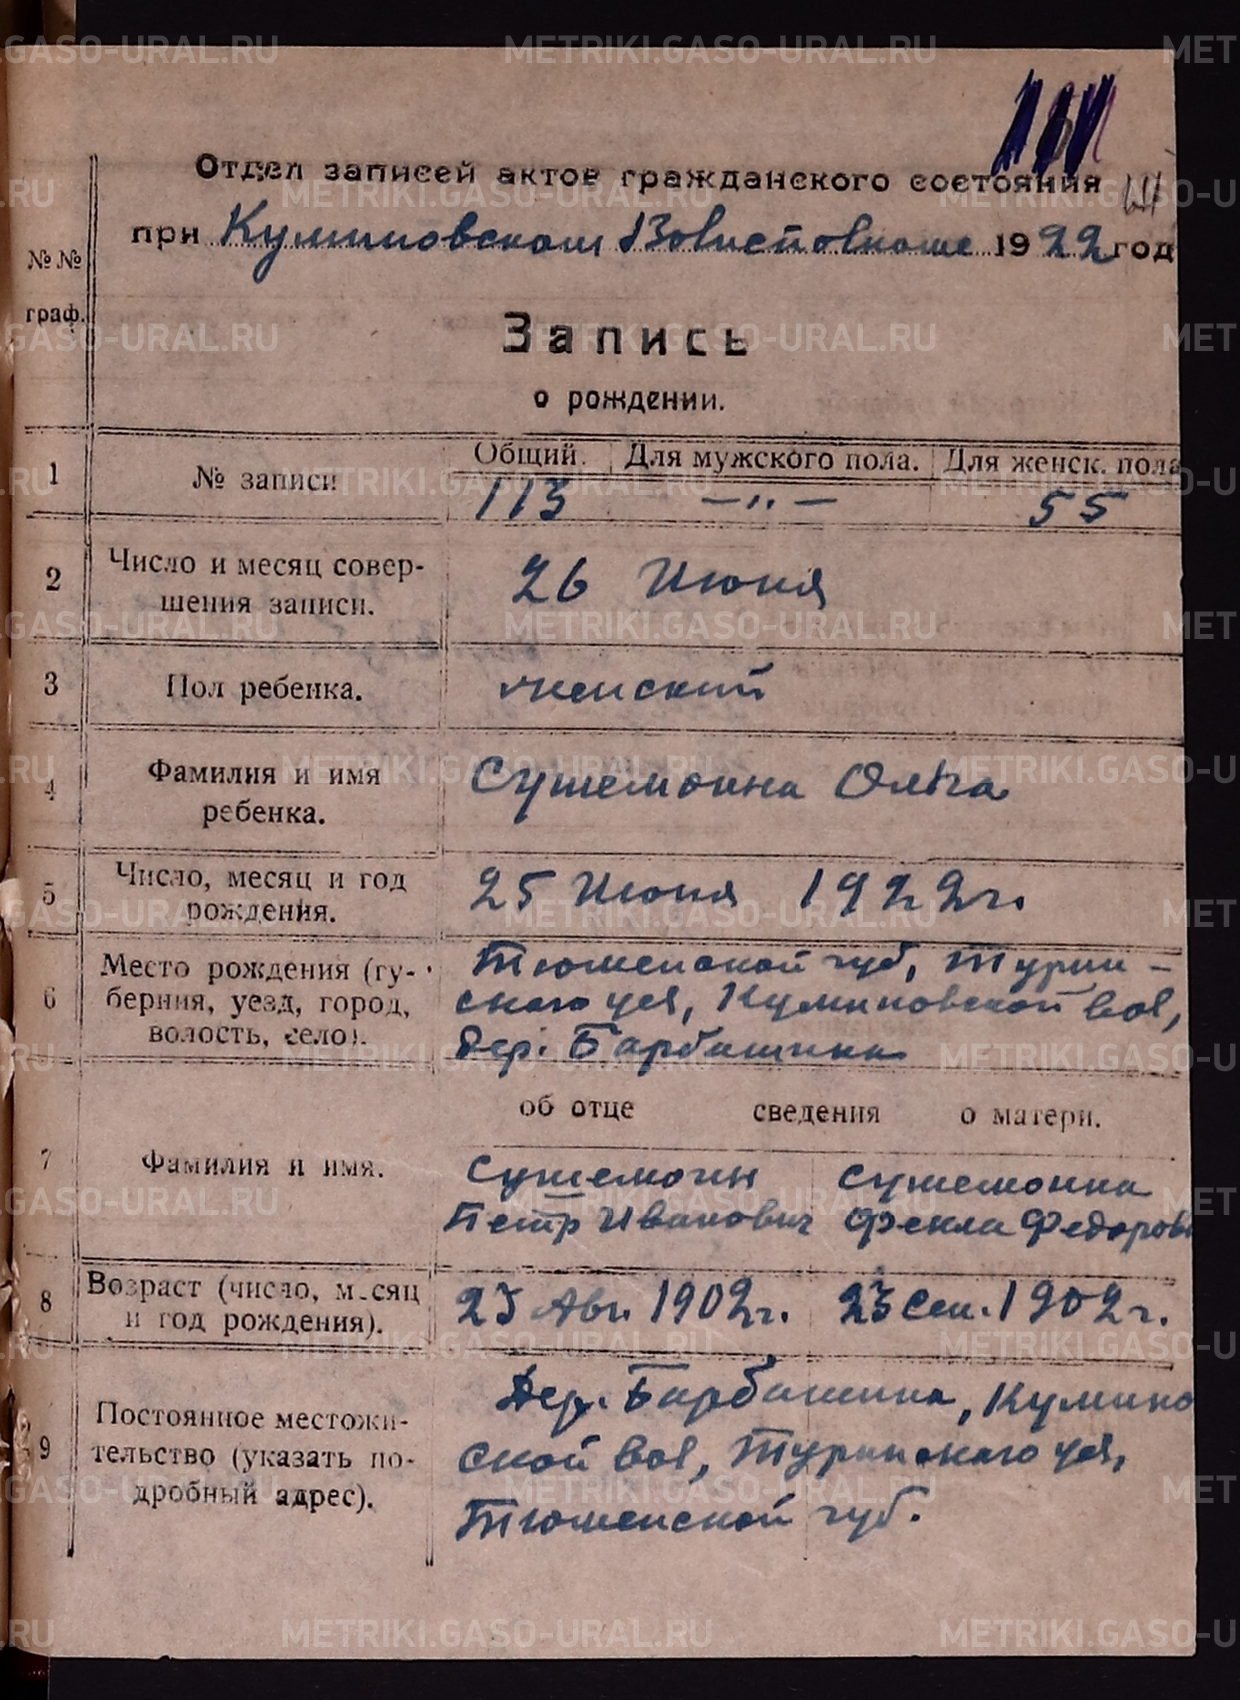 Отдел записей актов гражданского состояния
при Куминовском Волисполкоме 1922 год
№№
граф.
Запись
о рождении.
1 № записи Общий. Для мужского пола. Для женск. пола
113 — „ — 55
2 Число и месяц совер-
шения записи.
26 Июня
3 Пол ребенка. женский
4 Фамилия и имя
ребенка.
Ольга
5 Число, месяц и год
рождения.
25 Июня 1922г.
6 Место рождения (гу-
берния, уезд, город,
волость, село).
Тюменской губ, Турин-
скаго уез, Куминовской вол,
Дер. Барбашина
об отце сведения о матери.
7 Фамилия и имя.
Петр Иванович Фекла Федоров
8 Возраст (число, месяц
и год рождения).
Авг. 1902г. 23 Сен. 1902г.
9 Постоянное местожи-
тельство (указать по-
дробный адрес).
Дер. Барбашина, Кумино
ской вол, Туринскаго уез,
Тюменской губ.
METRIKI.GASO-URAL.RU